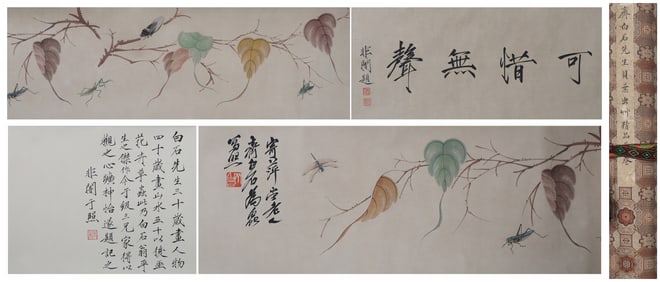 可惜無聲
非闇題
齊白石先生貝葉虫艸精品
寄萍堂老人
齊白石
白石先生三十歲畫人物
四十歲畫山水五十以後畫
花卉草蟲此乃白石翁平
生之傑作今于級三兄家得以
觀之心曠神怡遂題記之
非闇于照